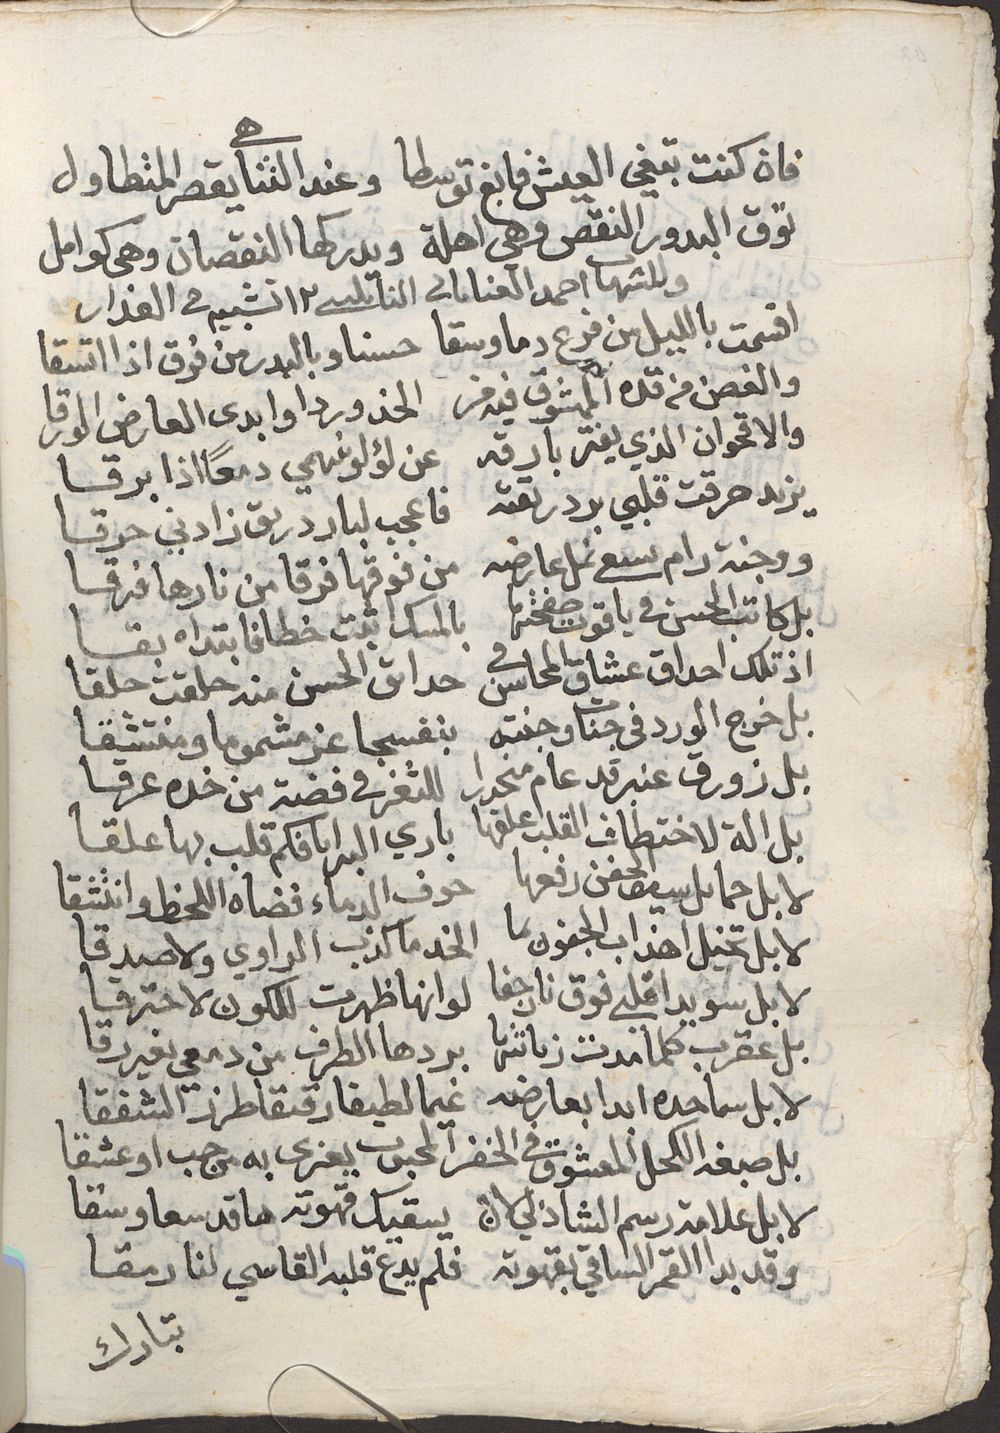 فان كنت تبغي العيش فابغ توسطا وعند التناهي يقصر المتطاول
توق البدور النقص وهي اهلة ويدركها النقصان وهي كوامل
وللشهاب احمد العناياتي النابلسي ١٢ تشبيه في العذار
اقسمت بالليل من فرع دما وسقا حسنا وبالبدر من فرق اذا اتسقا
والغصن من قده الممشوق فيه من الخد وردا وابدى العارض الورقا
والاقحوان الذي يفتر بارقه عن لؤلؤ يهمي دمعا اذا برقا
يزيد حرقت قلبي برد ريقته فاعجب لبارد ريق زادني حرقا
ووجنة رام يسعى نمل عارضه من فوقها فرقا من نارها فرقا
بل كاتب الحسن في ياقوت صفحتها بالمسك اثبت خطا فابتداه بقا
اذ تلك احداق عشاق المحاسن في حدائق الحسن منه حلقت حلقا
بل خرج الورد في جنات وجنته بنفسجا عز مشموما ومنتشقا
بل زورق عنبر قد عام منحدرا للثغر في فضة من خده غرقا
بل الة لاختطاف القلب اعلقها باري البرايا فكم قلب بها علقا
لا بل حمايل سيف الجفن رفعها خوف الدماء فضاه اللحظ وانتثقا
لا بل تخيل اهداب الجفون بما الخد ما كذب الراوي ولا صدقا
لا بل سويدا قلبي فوق نار جفا لو انها ظهرت للكون لاحترقا
بل عقرب كلما مدت زبانتها بردها الطرف من دمعي بغير رقا
لا بل سما خده ابدا بعارضه غيما لطيفا رقيقا طرز الشفقا
بل صبغه الكحل المعشوق في الخفر المحبوب يغرى به من حب او عشقا
لا بل علامة رسم الشاذلي لان يسقيك قهوته ها قد سعا وسقا
وقد بدا القمر الساقي بقهوته فلم يدع قلبه القاسي لنا رمقا
تبارك